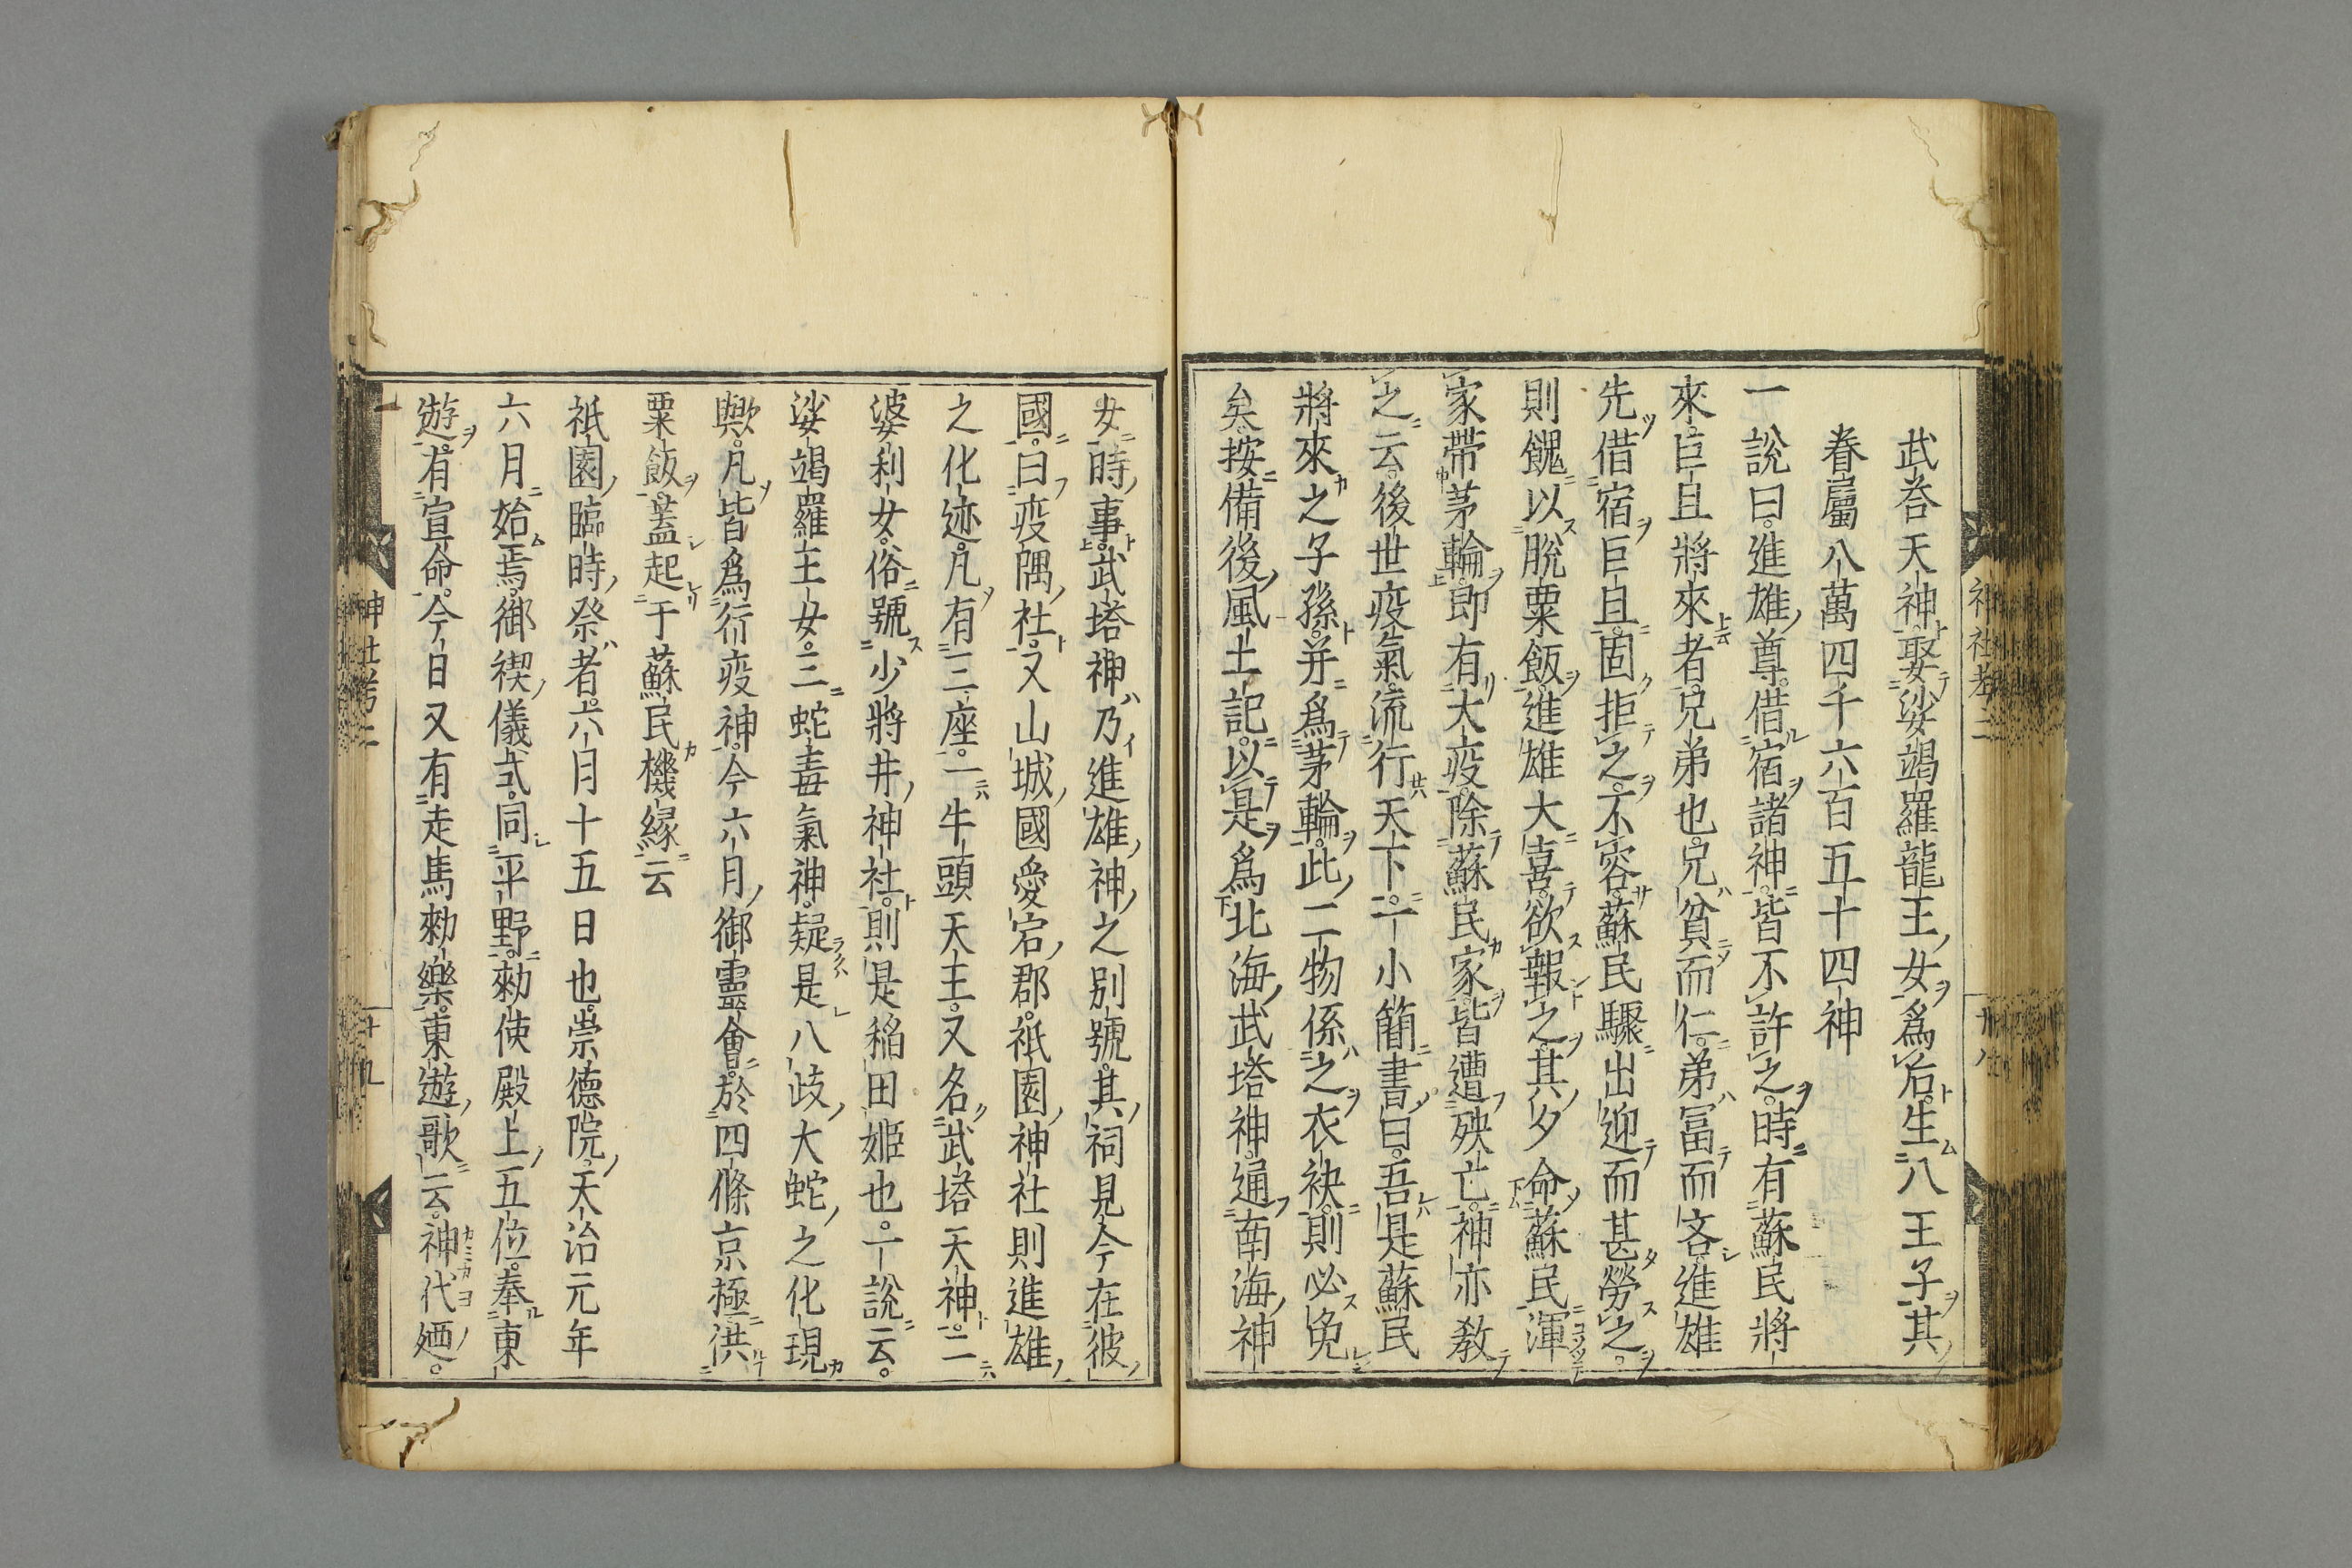 武荅天神娶娑竭羅龍王女爲后生八王子其
眷屬八萬四千六百五十四神
一說曰。進雄尊。借宿諸神。皆不許之。時有蘇民將
來。巨且將來者。兄弟也。兄貧而仁。弟冨而吝。進雄
先借宿巨且。固拒之。不容。蘇民驟出迎而甚勞之。
則餽以脫粟飯。進雄大喜。欲報之。其夕命蘇民渾
家帶茅輪。即有大疫。除蘇民家。皆遭殃亡。神亦敎
之云。後世疫氣。流行天下。一小簡書曰。吾是蘇民
將來之子孫。并爲茅輪。此二物係之衣袂。則必免
矣。按備後風土記。以是爲北海武塔神。通南海神
女時事。武塔神乃進雄神之别號。其祠見今在彼
國。曰疫隅社。又山城國愛宕郡。祇園神社則進雄
之化迹。凡有三座。一牛頭天王。又名武塔天神。二
婆利女。俗號少將井神社。則是稲田姫也。一說云。
娑竭羅王女。三蛇毒氣神。疑是八歧大蛇之化現
歟。凡皆爲行疫神。今六月御靈會。於四條京極供
粟飯。蓋起于蘇民機緣云
祇園臨時祭者。六月十五日也。崇德院天治元年
六月始焉。御禊儀式。同平野。勅使殿上五位。奉東
遊。有宣命。今日又有走馬勅樂。東遊歌云。神代廼。
神社考二
廿八
神社考二
廿九